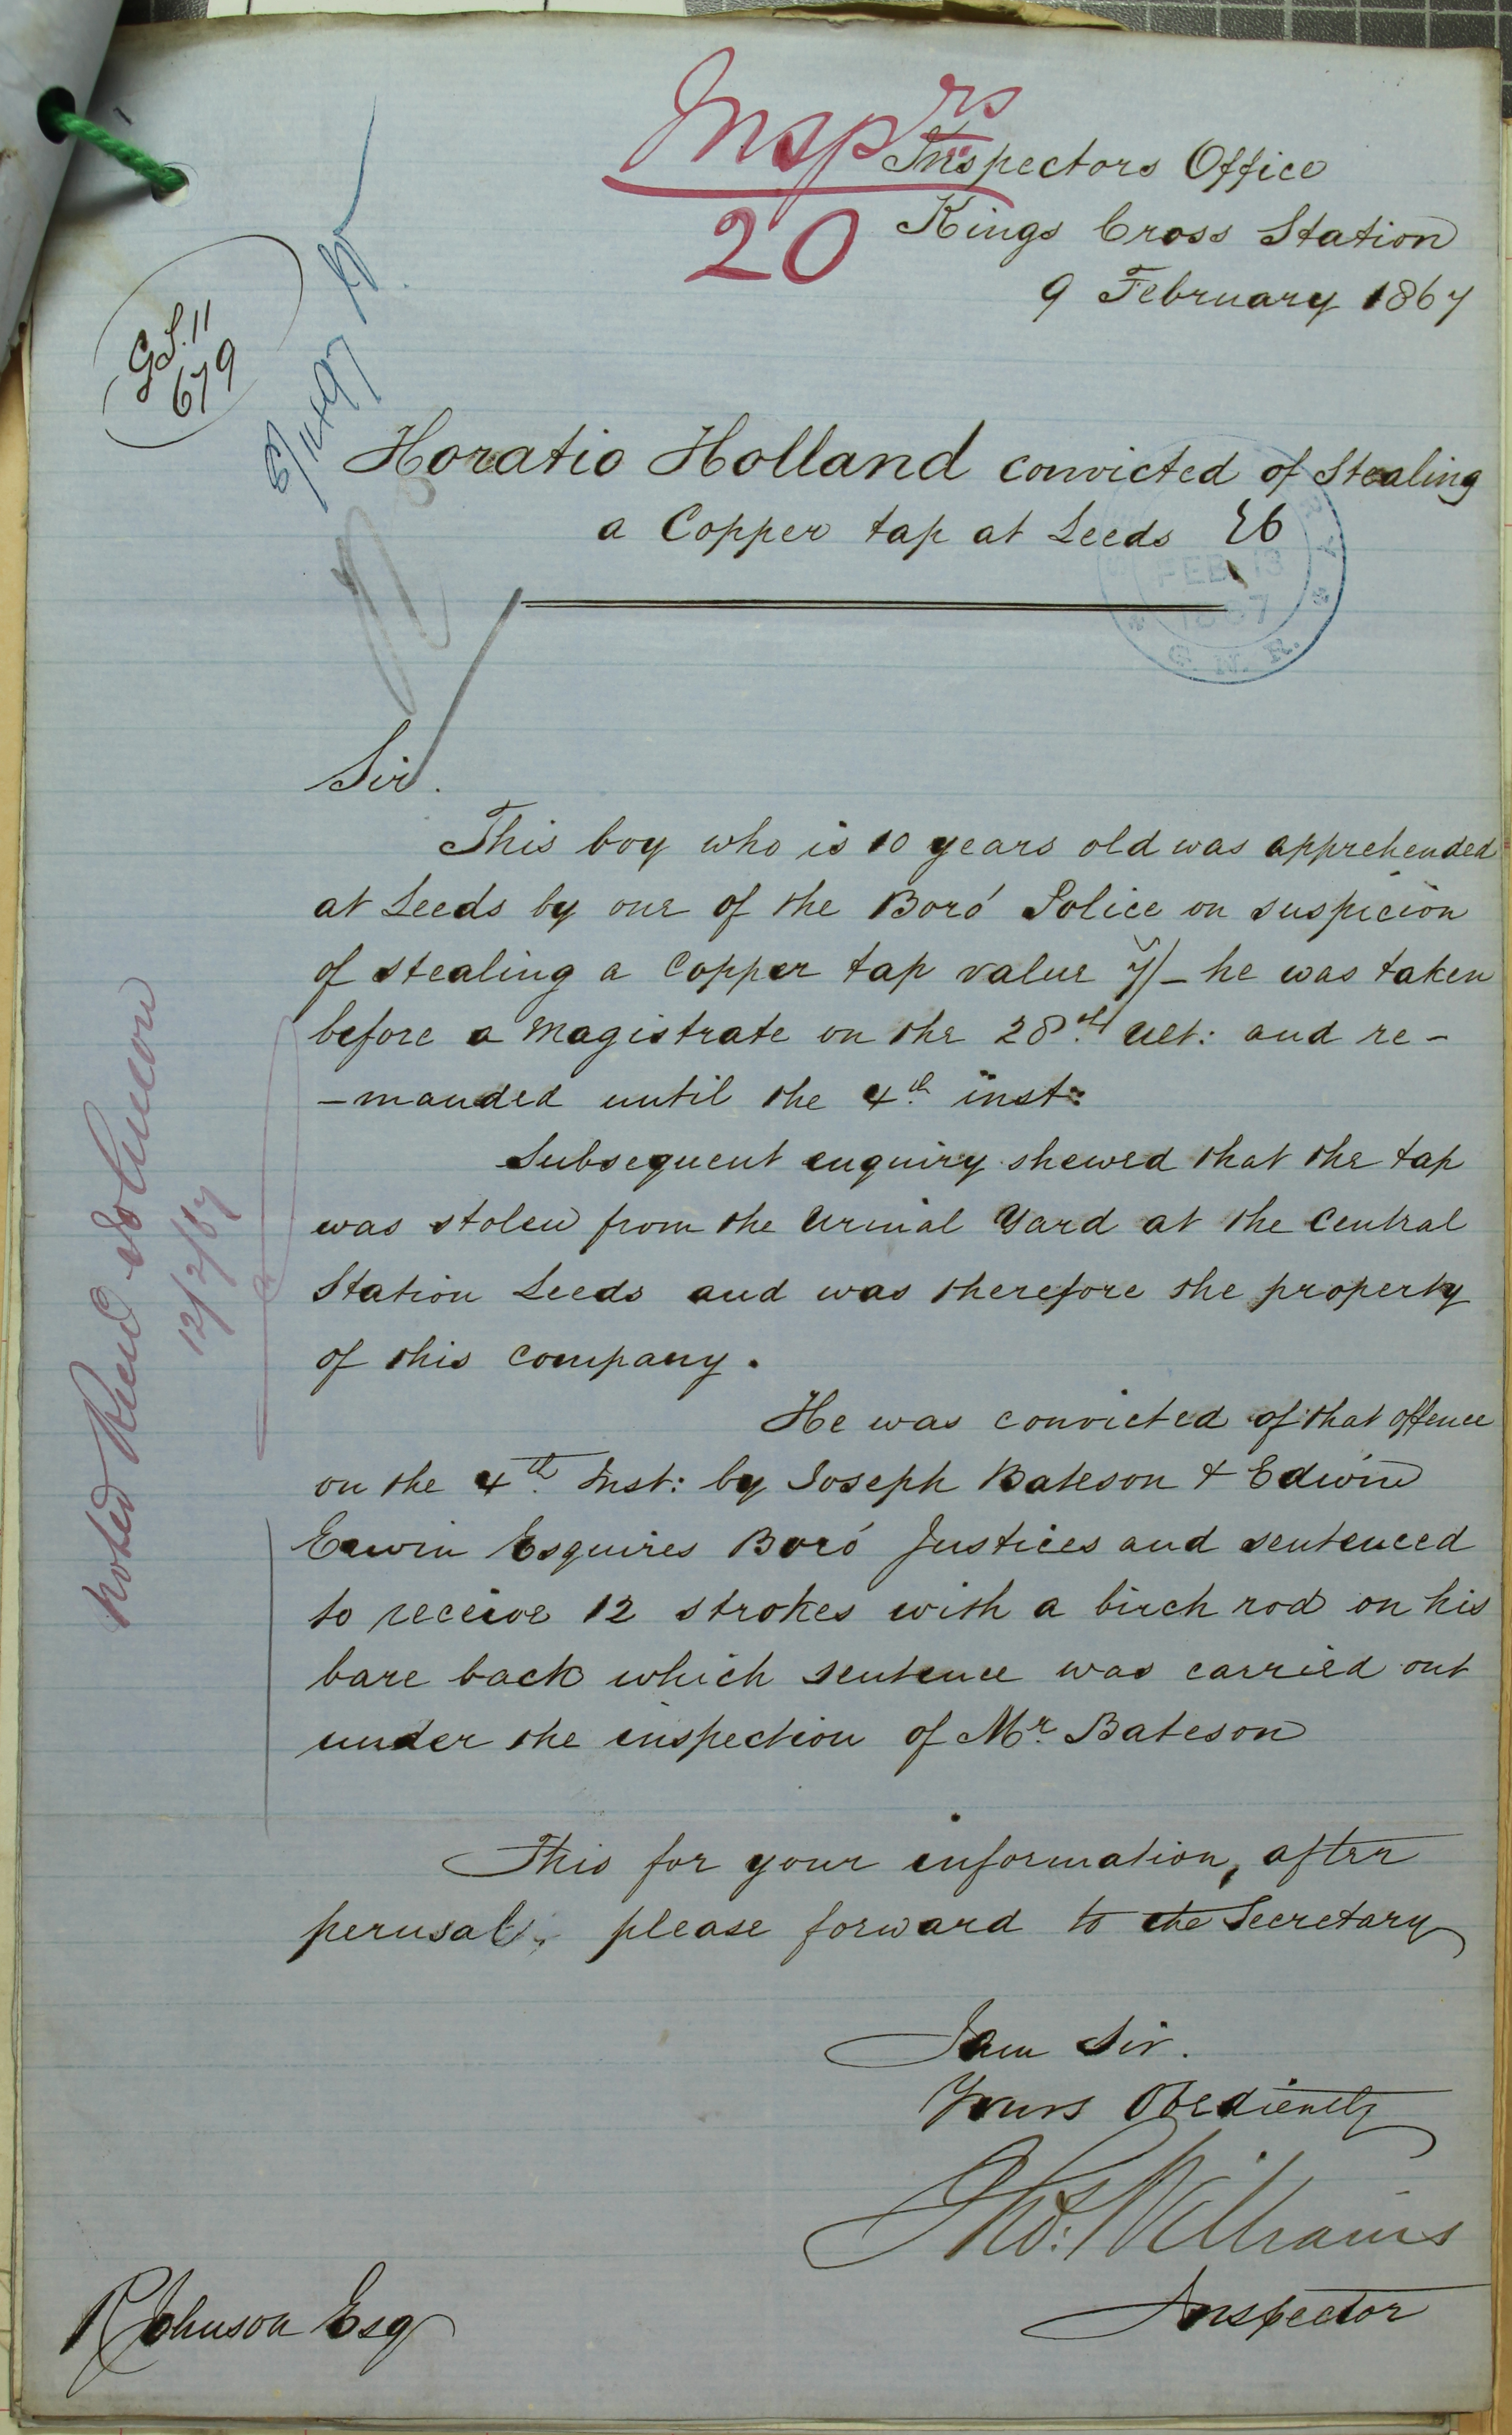 Insprs
20
Inspectors Office
Kings Cross Station
9 February 1867
G.S. 11
679
Horatio Holland convicted of Stealing
a Copper tap at Leeds
FEB 13
1867
G. N. R.
Sir.
This boy who is 10 years old was apprehended
at Leeds by one of the Boro' Police on suspicion
of stealing a Copper tap value 7/- he was taken
before a Magistrate on the 28th Ult: and re-
-manded until the 4th inst:
Subsequent enquiry shewed that the tap
was stolen from the Urinal Yard at the Central
Station Leeds and was therefore the property
of this Company.
He was convicted of that offence
on the 4th Inst: by Joseph Bateson & Edwin
Esquires Boro' Justices and sentenced
to receive 12 strokes with a birch rod on his
bare back which sentence was carried out
under the inspection of Mr. Bateson
This for your information, after
perusal, please forward to the Secretary
I am Sir.
Yours Obediently
Thos: Williams
Inspector
R Johnson Esq
Noted
12/2/67